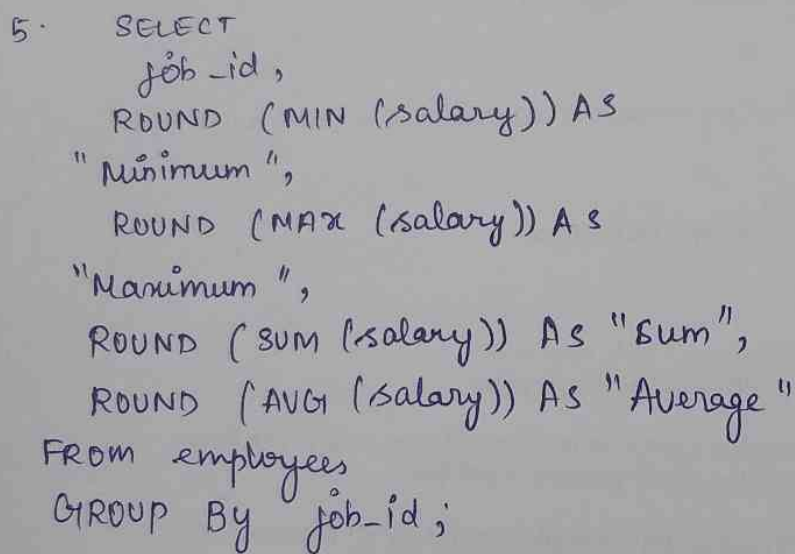 5. SELECT
job_id,
ROUND (MIN (salary)) AS
"Minimum",
ROUND (MAX (salary)) AS
"Maximum",
ROUND (SUM (salary)) AS "Sum",
ROUND (AVG (salary)) AS "Average"
FROM employees
GROUP By job_id;